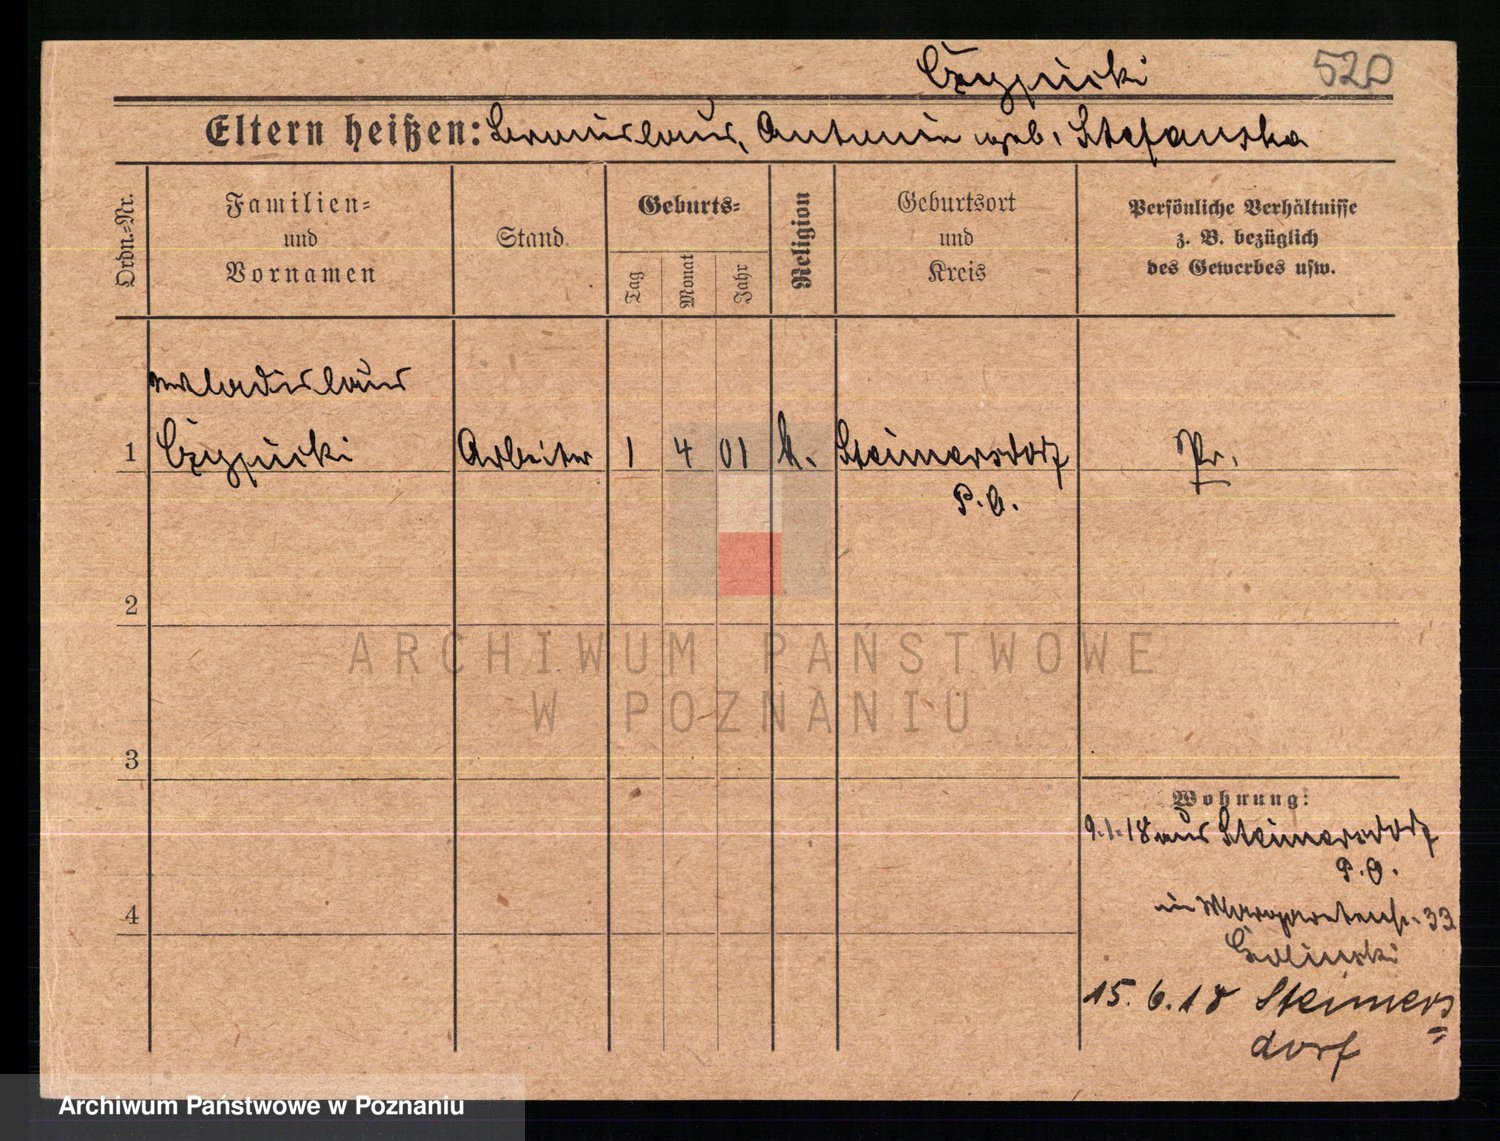 520
Eltern heißen: Stanislaus, Antonie geb. Stefanska
Ordn.-Nr.
Familien-
und
Vornamen
Stand
Geburts-
Tag
Monat
Jahr
Religion
Geburtsort
und
Kreis
Persönliche Verhältnisse
z. B. bezüglich
des Gewerbes usw.
Wladislaus
1 Arbeiter 1 4 01 k. Steimersdorf Pr.
P. O.
2
3
4
Wohnung:
9.1.18 aus Steimersdorf
P. O.
Margaretenstr. 33
15.6.18 Steimers=
dorf
ARCHIWUM PAŃSTWOWE
W POZNANIU
Archiwum Państwowe w Poznaniu